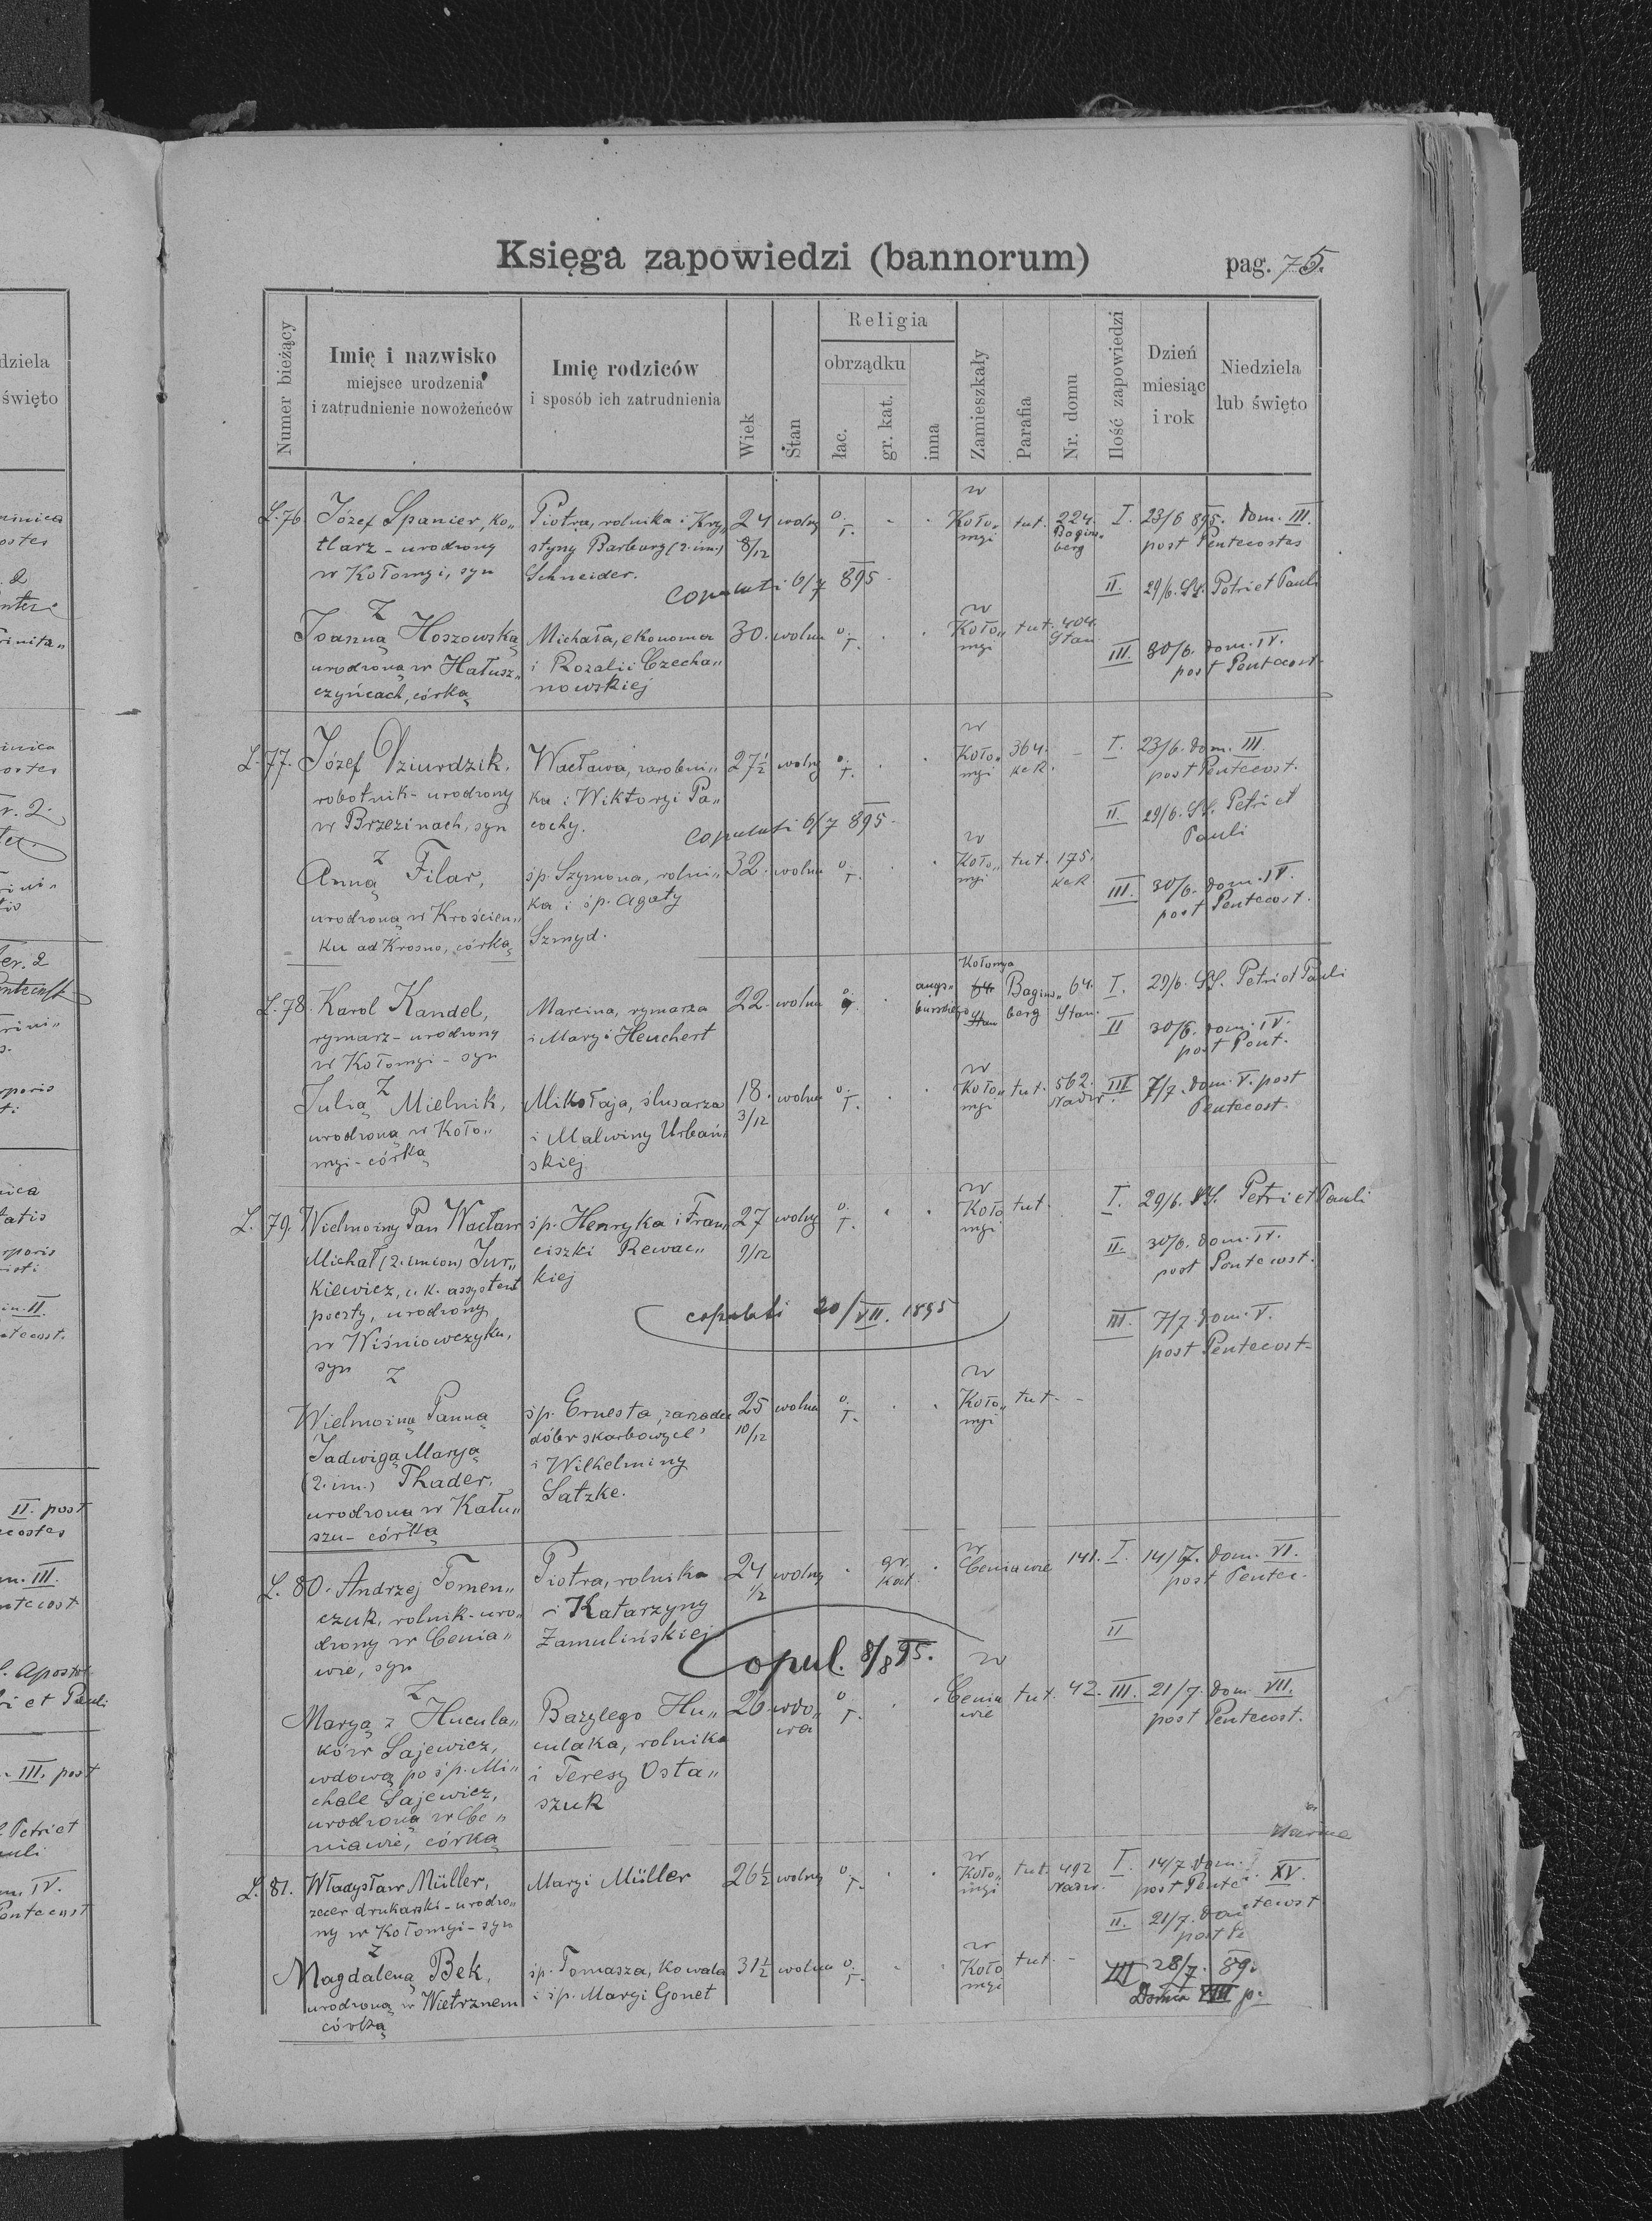 Księga zapowiedzi (bannorum)
pag. 75.
Numer bieżący
Imię i nazwisko
miejsce urodzenia
i zatrudnienie nowożeńców
Imię rodziców
i sposób ich zatrudnienia
Wiek
Stan
Religia
obrządku
łac.
gr. kat.
inna
Zamieszkały
Parafia
Nr. domu
Ilość zapowiedzi
Dzień
miesiąc
i rok
Niedziela
lub święto
L. 76
Józef Spanier, ko„
tlarz - urodzony
w Kołomyi, syn
Piotra, rolnika i Kry„
styny Barbary (2. im.)
Schneider.
24
8/12
wolny
o.
ł.
w
Koło„
myi
tut.
224.
Bagins„
berg
I. 23/6 895. Dom. III.
post Pentecostes
II. 29/6. SS. Petri et Pauli
III. 30/6. Dom. IV.
post Pentecost.
copulati 6/7 895.
z
Joanną Hoszowską
urodzoną w Hałusz„
czyńcach, córką
Michała, ekonoma
i Rozalii Czecha„
nowskiej
30. wolna
o.
ł.
w
Koło„
myi
tut.
404.
Stan.
L. 77.
Józef Dziurdzik,
robotnik - urodzony
w Brzezinach, syn
Wacława, zarobni„
ka i Wiktoryi Pa„
cochy.
27½ wolny
o.
ł.
w
Koło„
myi
364.
kek.
I. 23/6. Dom. III.
post Pentecost.
II. 29/6. SS. Petri et
Pauli
III. 30/6. Dom. IV.
post Pentecost.
copulati 6/7 895.
z
Anną Filar,
urodzoną w Krościen„
ku ad Krosno, córką
śp. Szymona, rolni„
ka i śp. Agaty
Szmyd.
32. wolna
o.
ł.
w
Koło„
myi
tut.
175.
kek
L. 78.
Karol Kandel,
rymarz - urodzony
w Kołomyi - syn
Marcina, rymarza
i Maryi Heuchert
22. wolna
augs„
burskiego
Kołomya
64.
Stan
Bagins„
berg
64.
Stan.
I. 29/6. SS. Petri et Pauli
II 30/6. Dom. IV.
post Pent.
III 7/7. Dom. V. post
Pentecost.
z
Julią Mielnik,
urodzoną w Koło„
myi - córką
Mikołaja, ślusarza
i Malwiny Urbań„
skiej
18.
3/12
wolna
o.
ł.
w
Koło„
myi
tut.
562.
Nadw.
L. 79.
Wielmożny Pan Wacław
Michał (2. imion) Jur„
kiewicz, c. k. assystent
poczty, urodzony
w Wiśniowczyku,
syn
śp. Henryka i Fran„
ciszki Rewac„
kiej
27
9/12
wolny
o.
ł.
w
Koło
myi
tut.
I. 29/6. SS. Petri et Pauli
II. 30/6. Dom. IV.
post Pentecost.
III. 7/7. Dom. V.
post Pentecost.
copulati 20/VII. 1895
z
Wielmożną Panną
Jadwigą Maryą
(2. im.) Thader,
urodzona w Kału„
szu - córką
śp. Ernesta, zarządcy
dóbr skarbowych
i Wilhelminy
Satzke.
25
10/12
wolna
o.
ł.
w
Koło„
myi
tut.
L. 80.
Andrzej Tomen„
czuk, rolnik - uro„
dzony w Cenia„
wie, syn
Piotra, rolnika
i Katarzyny
Zamulińskiej
24
½
wolny
gr.
kat.
w
Ceniawie
141.
I. 14/7. Dom. VI.
post Pentec.
II
III. 21/7. Dom. VII.
post Pentecost.
Copul. 8/8 95.
z
Maryą z Hucula„
ków Sajewicz,
wdową po śp. Mi„
chale Sajewicz,
urodzoną w Ce„
niawie, córką
Bazylego Hu„
culaka, rolnika
i Teresy Osta„
szuk
26
wdo„
wa
o.
ł.
w
Cenia
wie
tut. 42.
L. 81.
Władysław Müller,
zecer drukarski - urodzo„
ny w Kołomyi - syn
Maryi Müller
26½ wolny
o.
ł.
w
Koło„
myi
tut. 492
Nadw.
I. 14/7. Dom.
post Pente
XV.
II. 21/7. Dom
tecost
III 28/7. 89.
z
Magdaleną Bek,
urodzoną w Wietrznem
córką
śp. Tomasza, kowala
i śp. Maryi Gonet
31½ wolna
o.
ł.
w
Koło
myi
tut.